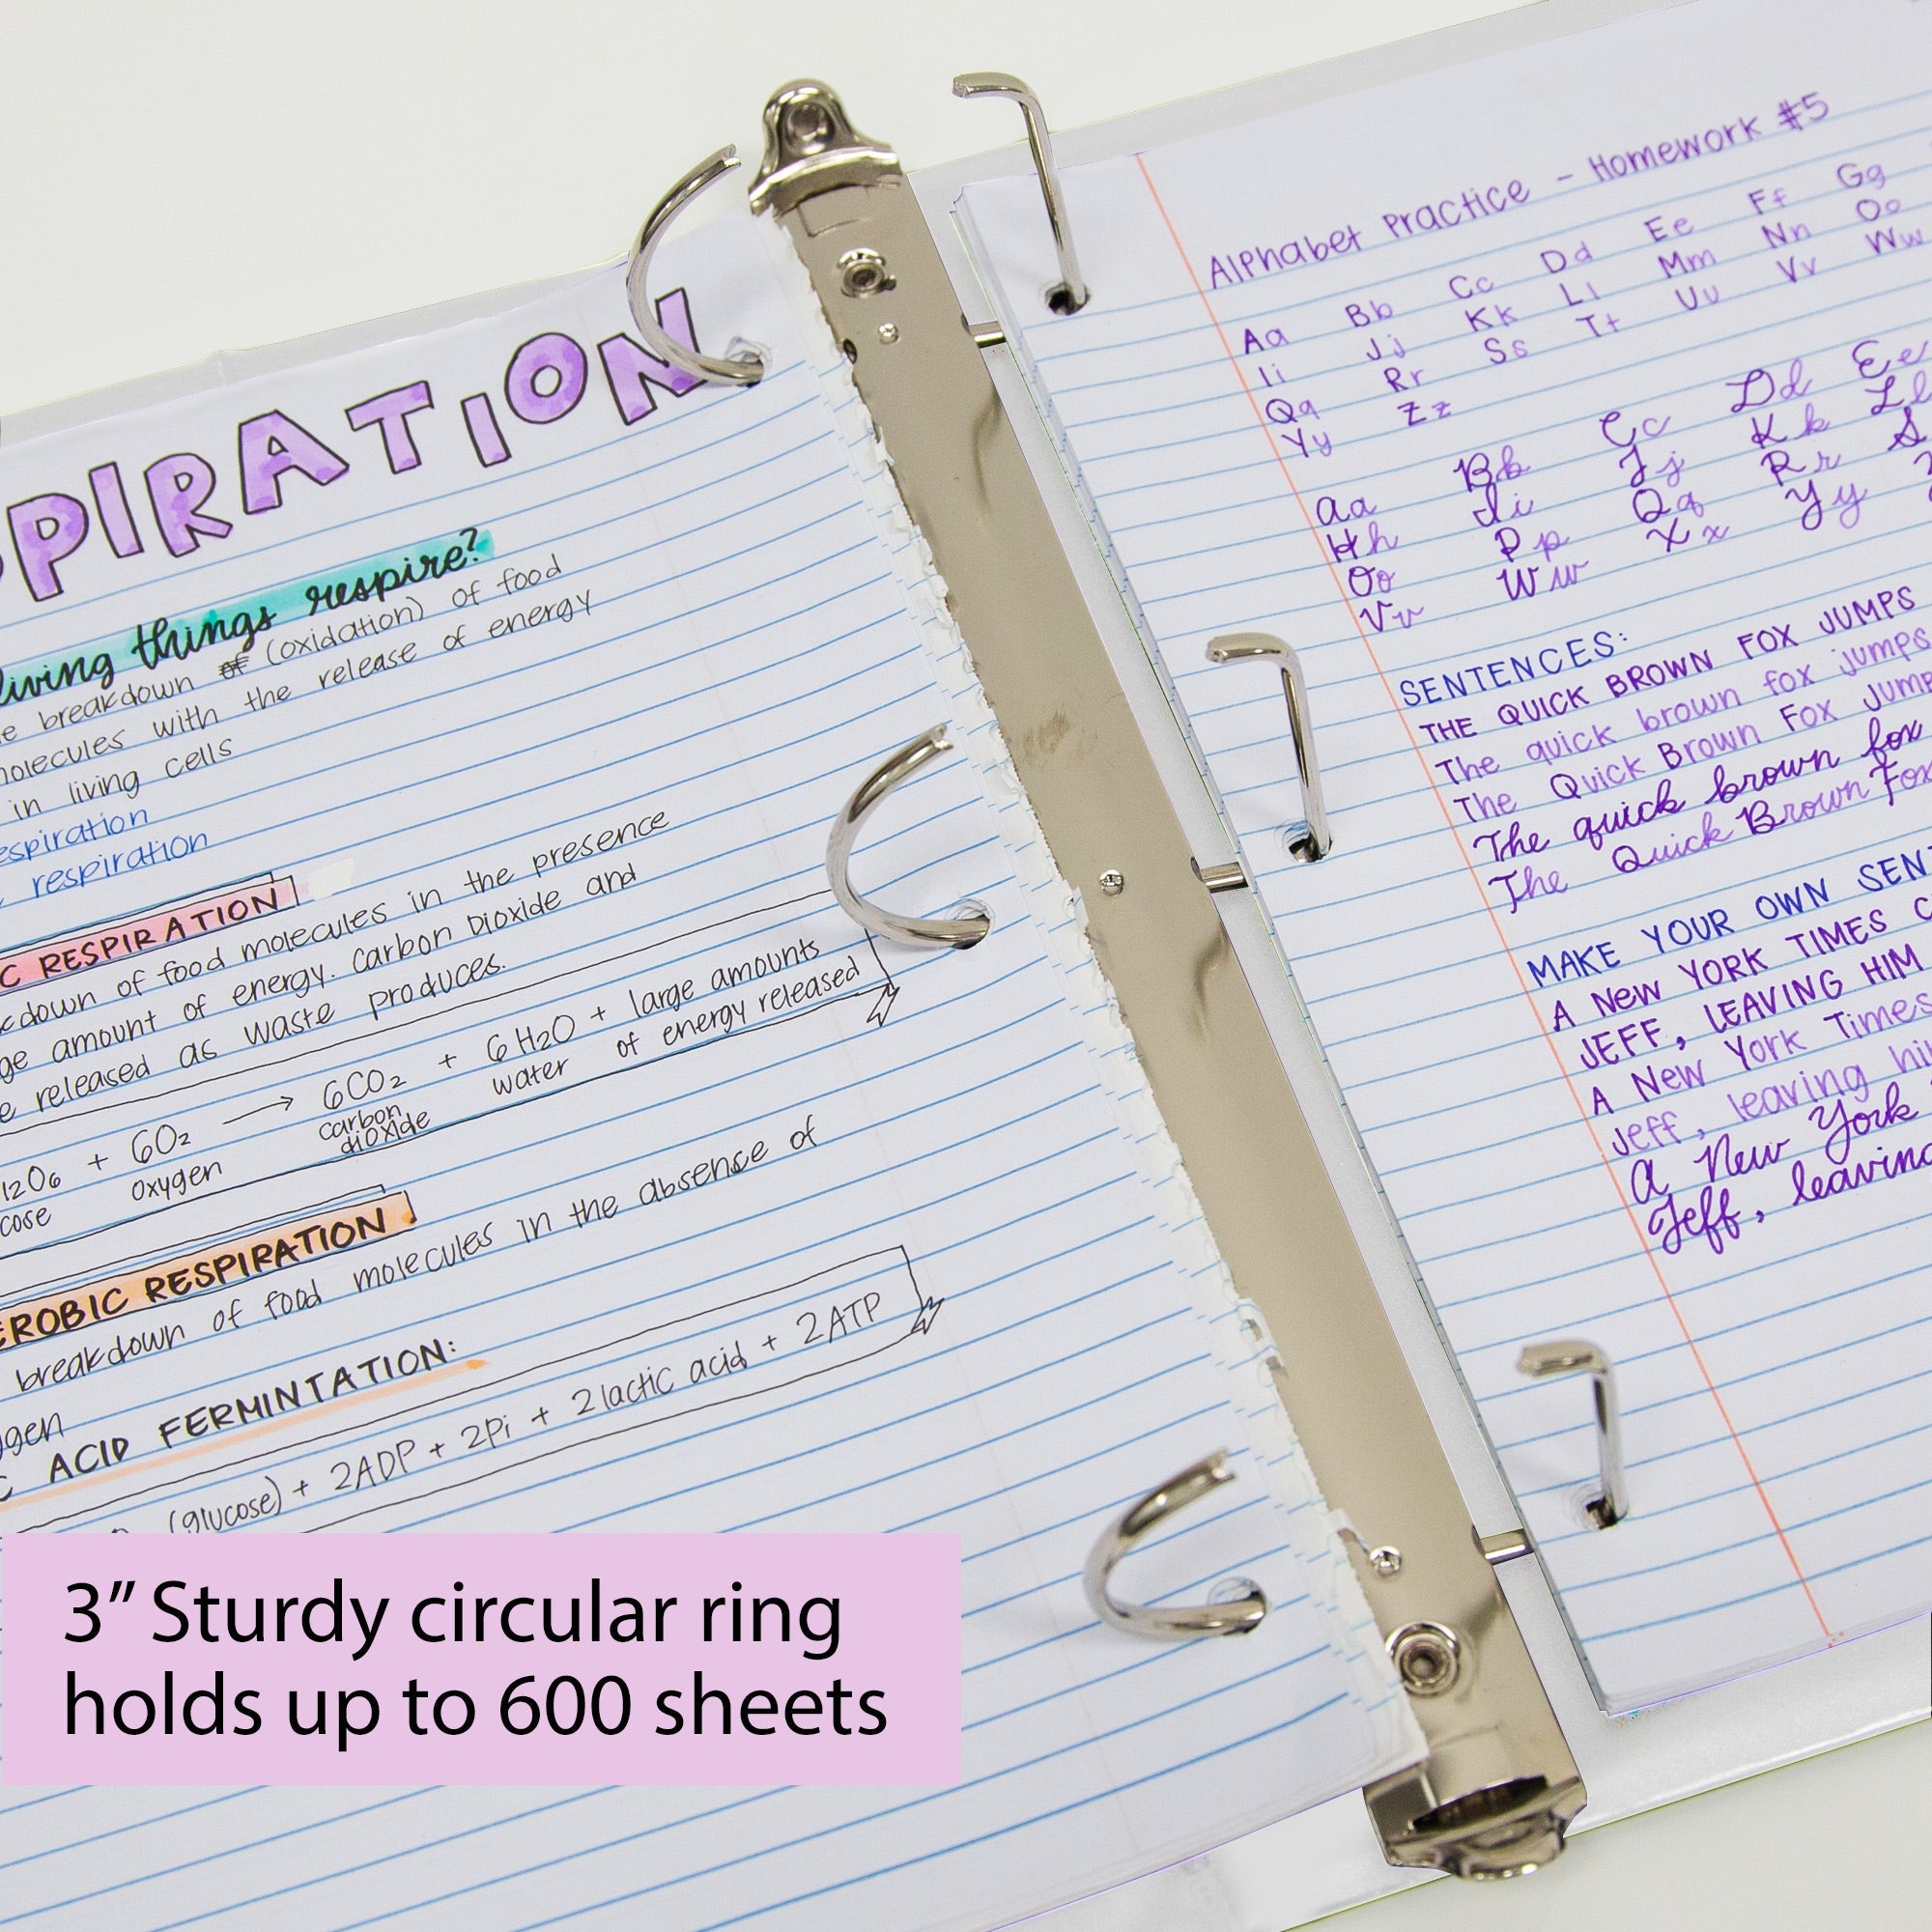 PIRATION
living things respire?
breakdown of (oxidation) of food
molecules with the release of energy
in living cells
respiration
respiration
C RESPIRATION
down of food molecules in the presence
amount of energy. Carbon Dioxide and
released as waste produces.
12O6 + 6O2 → 6CO2 + 6H2O + large amounts
cose oxygen carbon dioxide water of energy released
EROBIC RESPIRATION
breakdown of food molecules in the absence of
gen
C ACID FERMINTATION:
(glucose) + 2ADP + 2Pi + 2lactic acid + 2ATP
Alphabet Practice - Homework #5
Aa Bb Cc Dd Ee Ff Gg
Ii Jj Kk Ll Mm Nn Oo
Qq Rr Ss Tt Uu Vv Ww
Yy Zz
Aa Bb Cc Dd Ee
Hh Ii Jj Kk Ll
Oo Pp Qq Rr S
Vv Ww Xx Yy
SENTENCES:
THE QUICK BROWN FOX JUMPS
The quick brown fox jumps
The Quick Brown Fox Jump
The quick brown fox
The Quick Brown Fox
MAKE YOUR OWN SENT
A NEW YORK TIMES C
JEFF, LEAVING HIM
A New York Times
Jeff, leaving hi
A New York
Jeff, leaving
3” Sturdy circular ring
holds up to 600 sheets